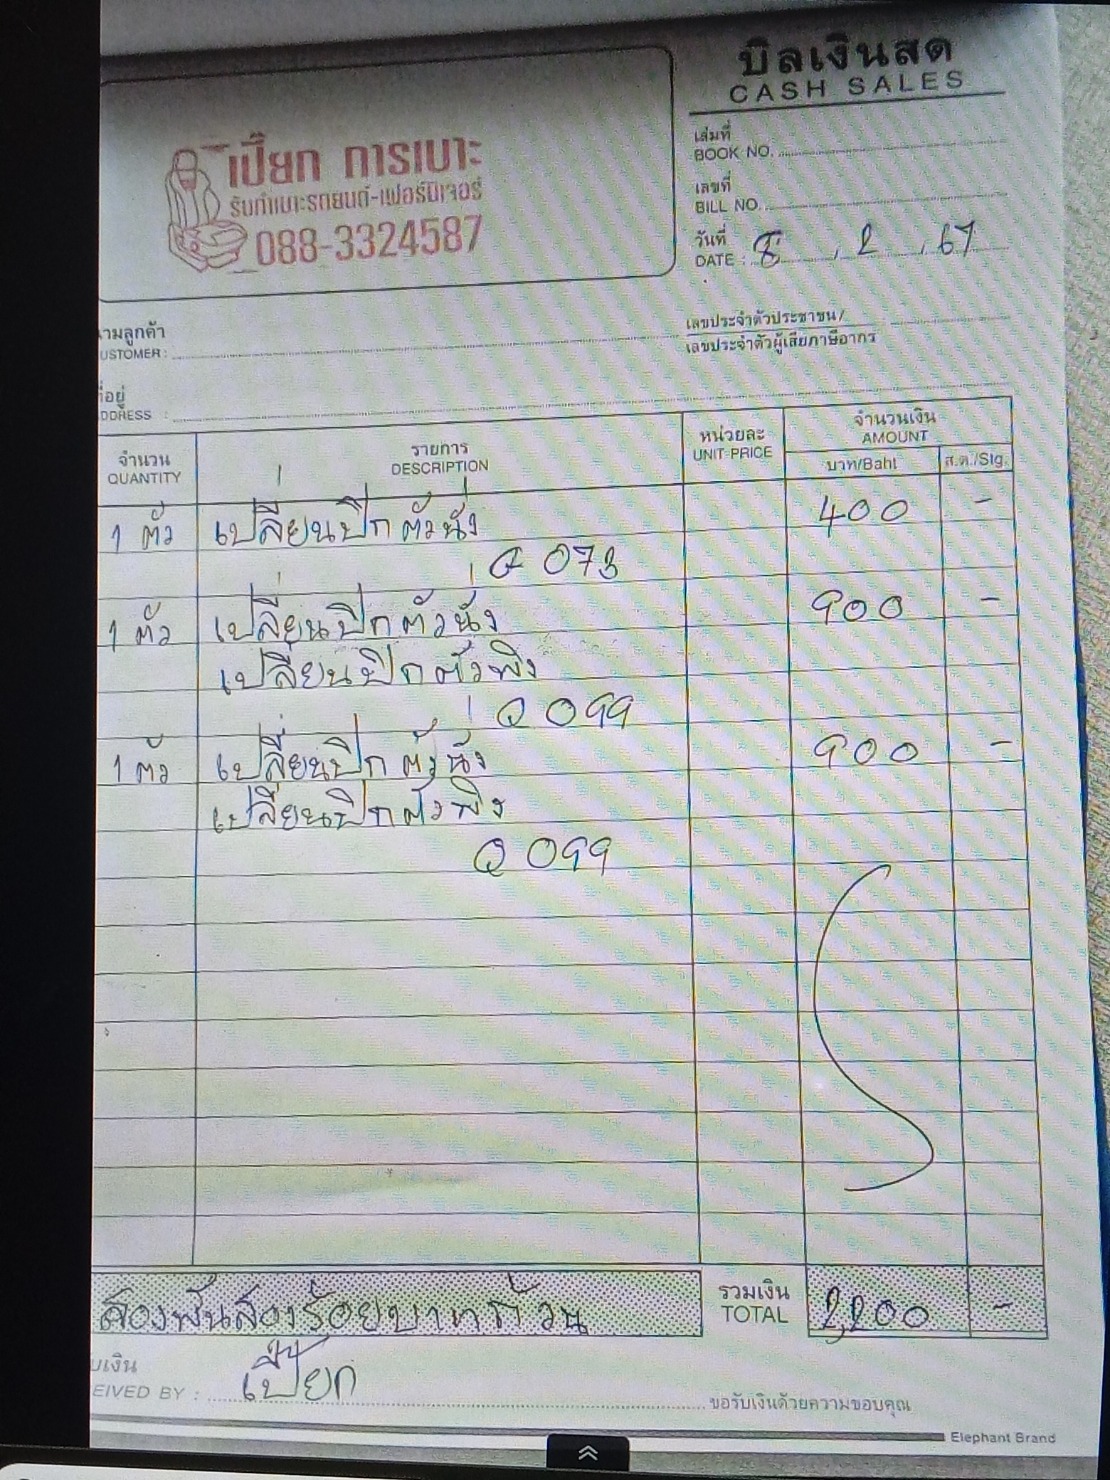 บิลเงินสด
CASH SALES
เปี๊ยก การเบาะ
รับทำเบาะรถยนต์-เฟอร์นิเจอร์
088-3324587
เล่มที่
BOOK NO.
เลขที่
BILL NO.
วันที่
DATE : 8 , 2 , 67
ามลูกค้า
USTOMER :
เลขประจำตัวประชาชน/
เลขประจำตัวผู้เสียภาษีอากร
ที่อยู่
DDRESS :
จำนวน รายการ หน่วยละ จำนวนเงิน
QUANTITY DESCRIPTION UNIT-PRICE AMOUNT
บาท/Baht ส.ต./Stg.
1 ตัว เปลี่ยนปีกตัวนั่ง 400 -
Q 073
1 ตัว เปลี่ยนปีกตัวนั่ง 900 -
เปลี่ยนปีกตัวพิง
Q 099
1 ตัว เปลี่ยนปีกตัวนั่ง 900 -
เปลี่ยนปีกตัวพิง
Q 099
สองพันสองร้อยบาทถ้วน รวมเงิน TOTAL 2,200 -
บเงิน
EIVED BY : เปี๊ยก
ขอรับเงินด้วยความขอบคุณ
Elephant Brand